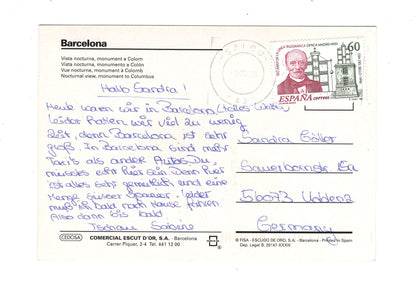 Barcelona
Vista nocturna, monument a Colom
Vista nocturna, monumento a Colón
Vue nocturne, monument à Colomb
Nocturnal view, monument to Columbus
Hallo Sandra!
Heute waren wir in Barcelona (tolles Wetter)
Leider hatten wir viel zu wenig
Zeit, denn Barcelona ist sehr
groß. In Barcelona sind mehr
Taxis als andre Autos. Du
müsstest echt hier sein. Denn hier
ist alles sehr gemütlich und eine
Menge süsser Spanier. Leider
muß ich bald nach Hause fahren.
Also dann bis bald
Tschau Sabine
CEDOSA
COMERCIAL ESCUT D'OR, S.A.
Carrer Piquer, 2-4 Tel. 441 12 00
60
ESPAÑA CORREOS
SALOU
Sandra
56073 Koblenz
Germany
© FISA - ESCUDO DE ORO, S.A. - Barcelona - Printed in Spain
Dep. Legal B.